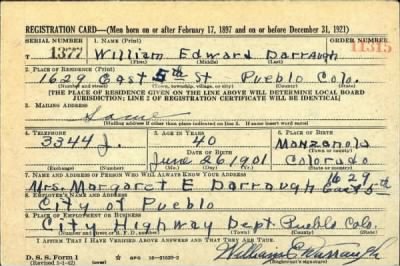 REGISTRATION CARD—(Men born on or after February 17, 1897 and on or before December 31, 1921)
SERIAL NUMBER 1. NAME (Print) ORDER NUMBER
1377 William Edward Darraugh 11315
(First) (Middle) (Last)
2. PLACE OF RESIDENCE (Print)
1629 East 5th St Pueblo Colo.
(Number and street) (Town, township, village, or city) (County) (State)
[THE PLACE OF RESIDENCE GIVEN ON THE LINE ABOVE WILL DETERMINE LOCAL BOARD
JURISDICTION; LINE 2 OF REGISTRATION CERTIFICATE WILL BE IDENTICAL]
3. MAILING ADDRESS
Same
[Mailing address if other than place indicated on line 2. If same insert word same]
4. TELEPHONE 5. AGE IN YEARS 6. PLACE OF BIRTH
3344 J. 40 Manzanola
DATE OF BIRTH (Town or county)
June 26 1901 Colorado
(Exchange) (Number) (Mo.) (Day) (Yr.) (State or country)
7. NAME AND ADDRESS OF PERSON WHO WILL ALWAYS KNOW YOUR ADDRESS
1629
Mrs. Margaret E Darraugh East 5th
8. EMPLOYER'S NAME AND ADDRESS
City of Pueblo
9. PLACE OF EMPLOYMENT OR BUSINESS
City Highway Dept. Pueblo Colo.
(Number and street or R. F. D. number) (Town) (County) (State)
I AFFIRM THAT I HAVE VERIFIED ABOVE ANSWERS AND THAT THEY ARE TRUE.
D. S. S. Form 1
(Revised 1-1-42) GPO 16—21630-2
William E Darraugh
(Registrant's signature)